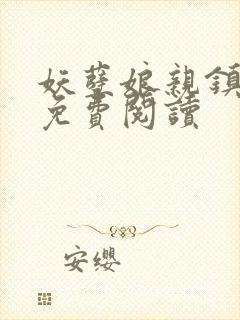 妖孽娘親鎮
免費閱讀
安纓